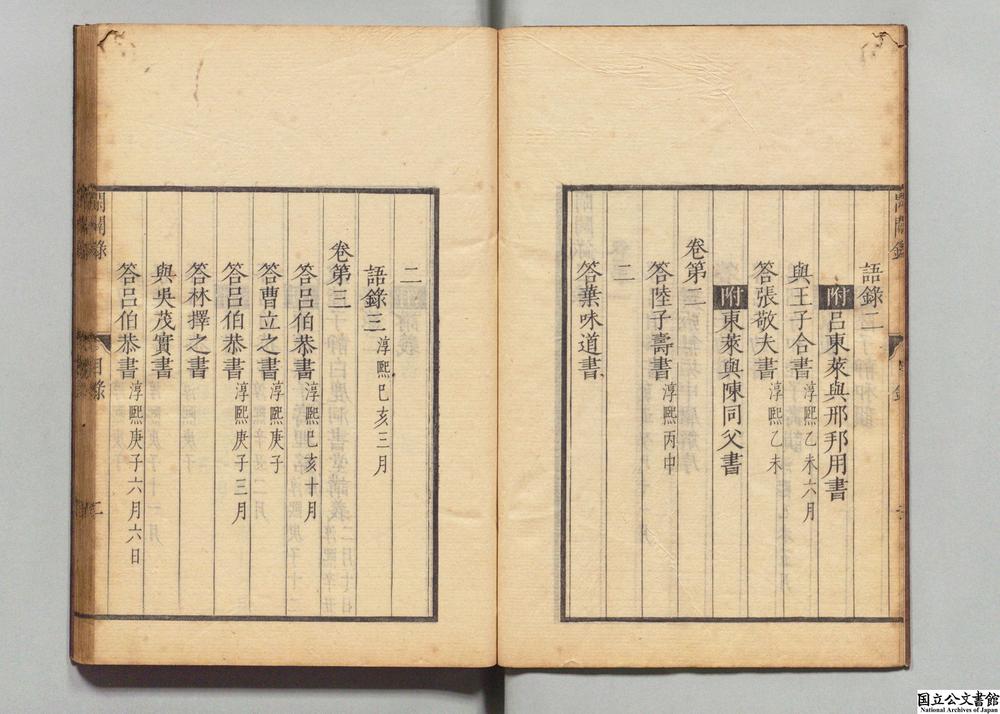 語錄二
附呂東萊與邢邦用書
與王子合書淳熙乙未六月
答張敬夫書淳熙乙未
附東萊與陳同父書
卷第二
答陸子壽書淳熙丙申
二
答葉味道書
二
語錄三淳熙己亥三月
卷第三
答呂伯恭書淳熙己亥十月
答曹立之書淳熙庚子
答呂伯恭書淳熙庚子三月
答林擇之書
與吳茂實書
答呂伯恭書淳熙庚子六月六日
閑闢錄
目錄
二
国立公文書館
National Archives of Japan